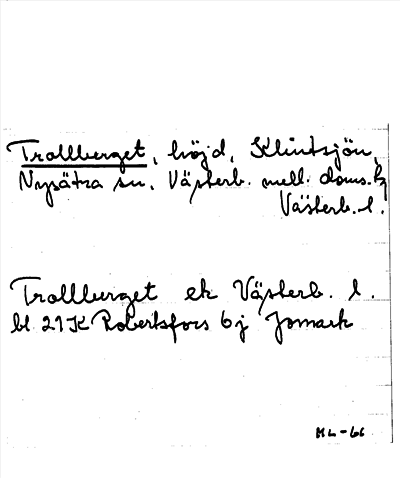 Trollberget, höjd, Klintsjön,
Nysätra sn. Västerb. mell. doms.
Västerb. l.
Trollberget ek Västerb. l.
bl 21K Robertsfors 6j Jomark
ML-66